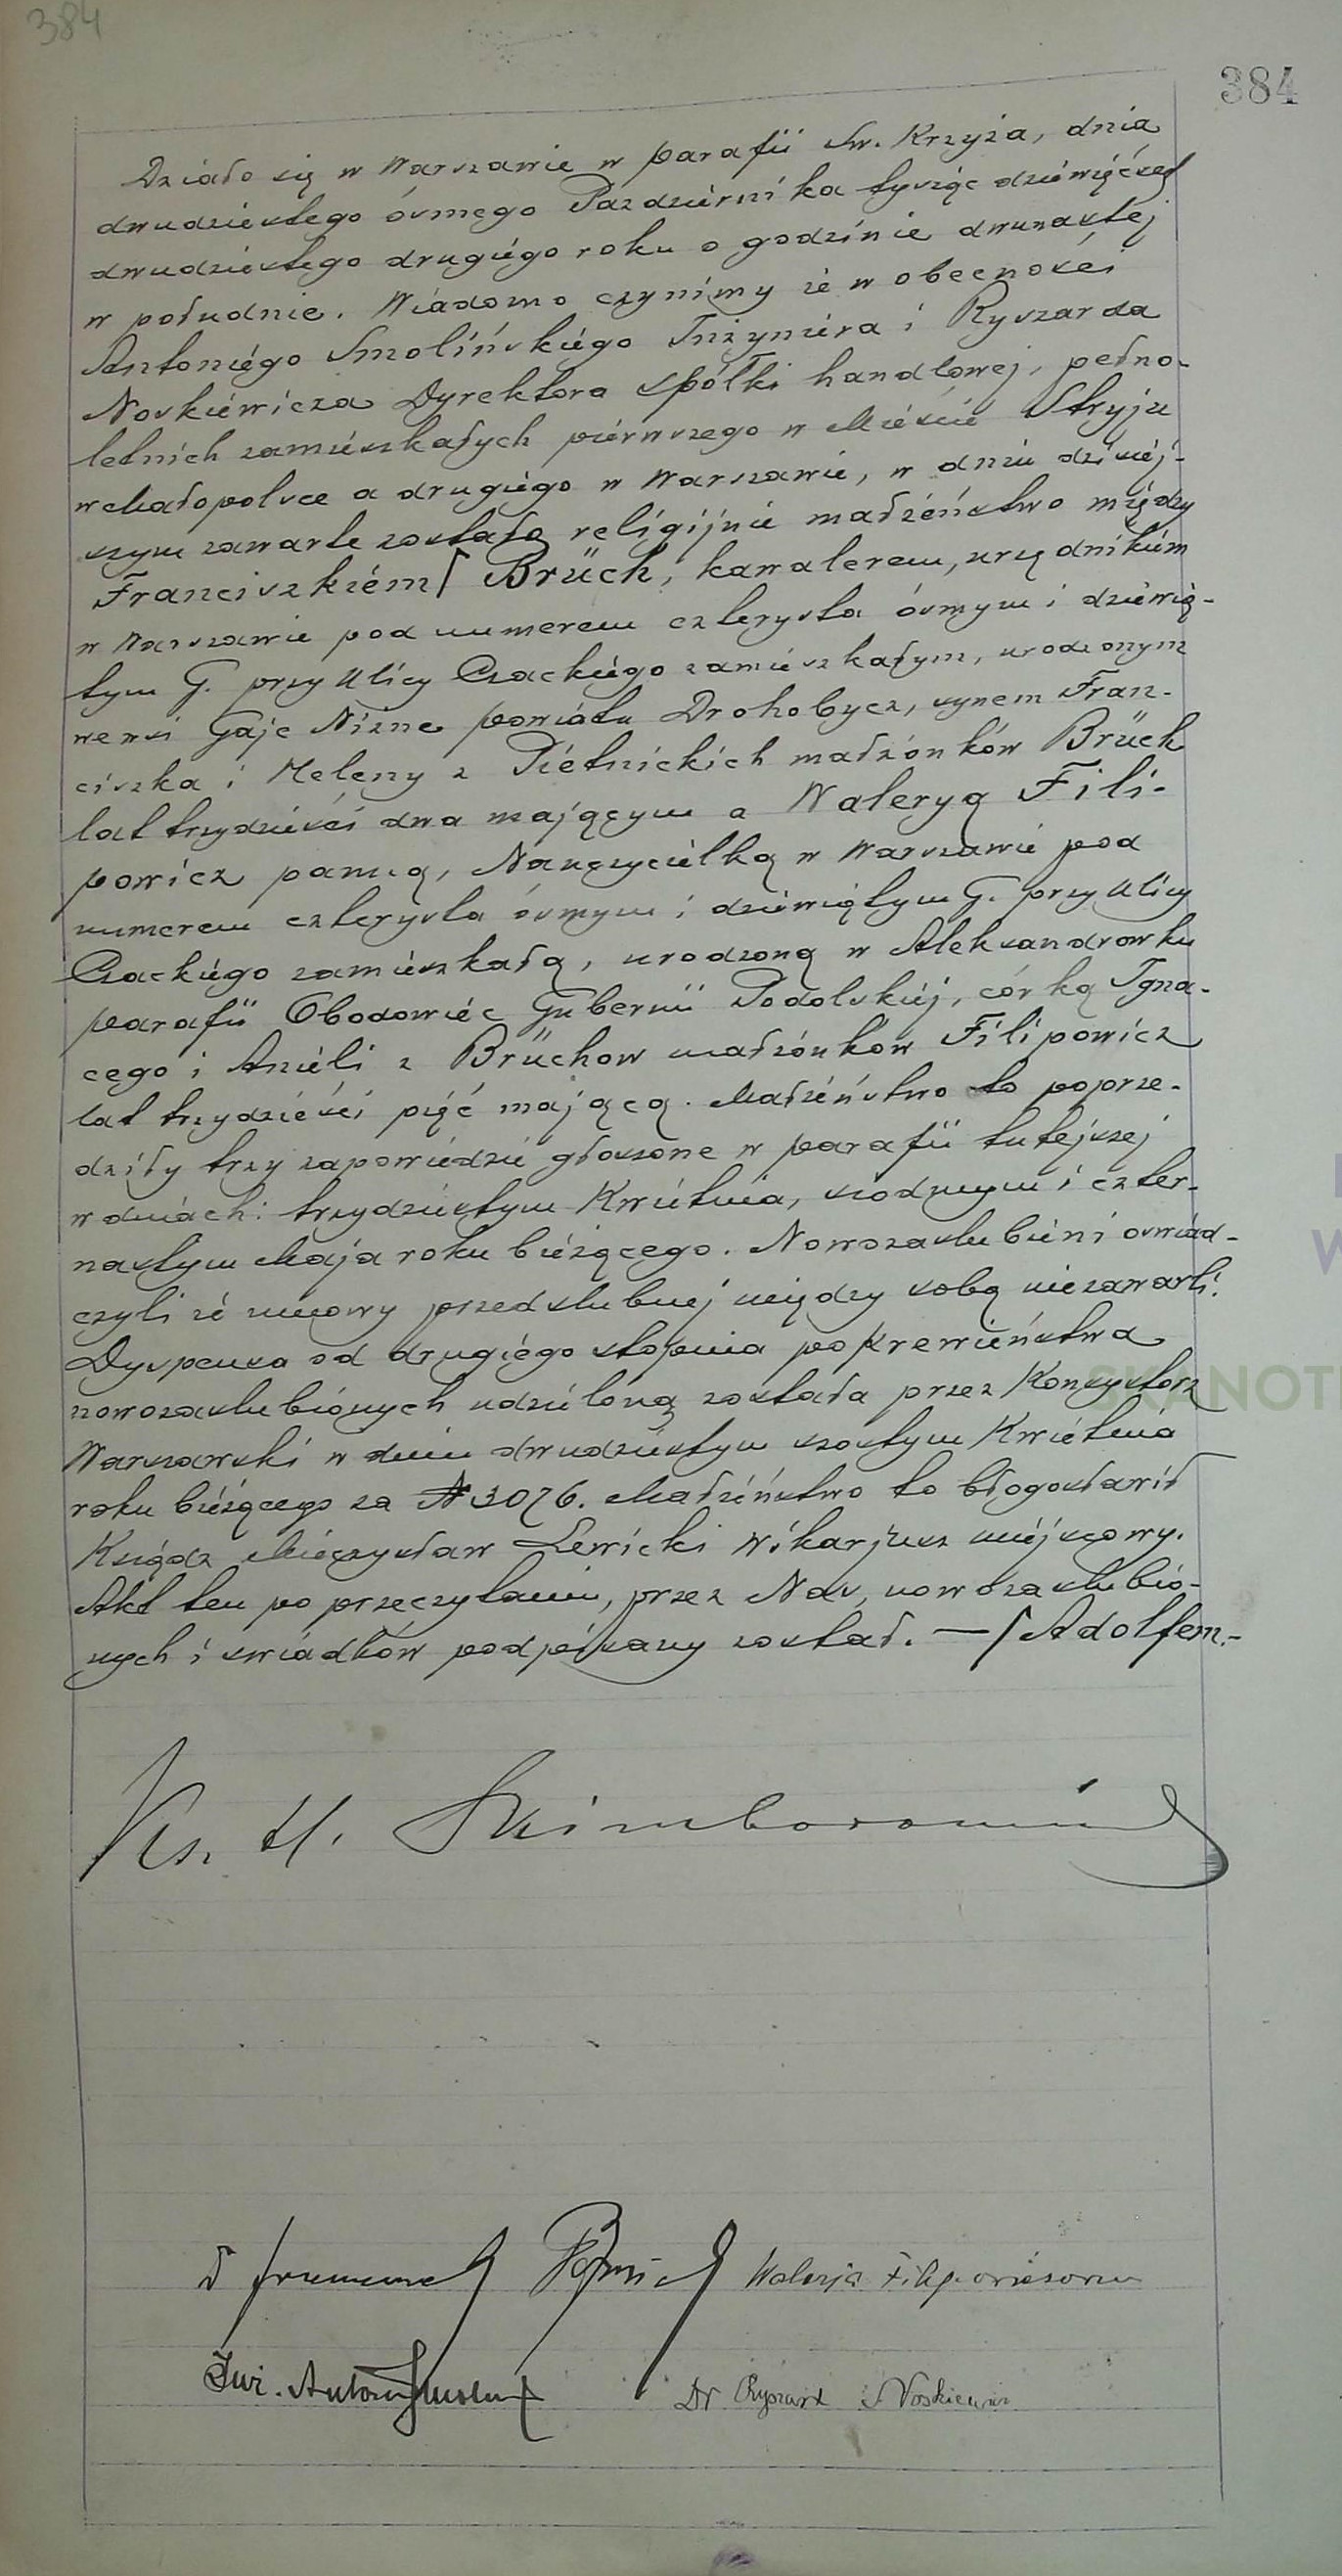 384
384
Działo się w Warszawie w parafii Św. Krzyża, dnia
dwudziestego ósmego Października tysiąc dziewięćset
dwudziestego drugiego roku o godzinie dwunastej
w południe. Wiadomo czynimy że w obecności
Antoniego Smolińskiego Inżyniera i Ryszarda
Noskiewicza Dyrektora spółki handlowej, pełno-
letnich zamieszkałych pierwszego w Mieście Stryju
w Małopolsce a drugiego w Warszawie, w dniu dzisiej-
szym zawarte zostało religijnie małżeństwo między
Franciszkiem⌈ Brüch, kawalerem, urzędnikiem
w Warszawie pod numerem czterysta ósmym i dziewią-
tym G. przy Ulicy Czackiego zamieszkałym, urodzonym
we wsi Gaje Niżne powiatu Drohobycz, synem Fran-
ciszka i Heleny z Pietnickich małżonków Brüch
lat trzydzieści dwa mającym a Waleryą Fili-
powicz panną, Nauczycielką w Warszawie pod
numerem czterysta ósmym i dziewiątym G. przy Ulicy
Czackiego zamieszkałą, urodzoną w Aleksandrowku
parafii Obodowiec Gubernii Podolskiej, córką Igna-
cego i Anieli z Brüchow małżonków Filipowicz
lat trzydzieści pięć mającą. Małżeństwo to poprze-
dziły trzy zapowiedzie głoszone w parafii tutejszej
w dniach: trzydziestym Kwietnia, siodmym i czter-
nastym Maja roku bieżącego. Nowozaslubieni oswiad-
czyli że umowy przedslubnej między sobą nie zawarli.
Dyspensa od drugiego stopnia pokrewieństwa
nowozaslubionych udzieloną została przez Konsystorz
Warszawski w dniu dwudziestym szostym Kwietnia
roku bieżącego za № 3076. Małżeństwo to błogosławił
Ksiądz Mieczysław Lewicki Wikarjusz miejscowy.
Akt ten po przeczytaniu, przez Nas, nowozaslubio-
nych i swiadków podpisany został. —⌈Adolfem.-
Ks.
Walerja Filipowiczowna
Inż. Antoni
Dr Ryszard Noskiewicz